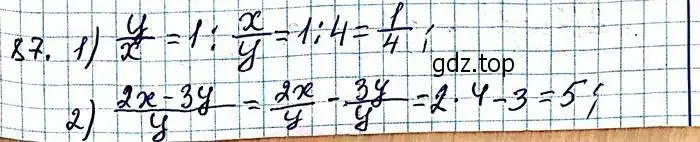 87. 1) y/x = 1 : x/y = 1 : 4 = 1/4 ;
gdz.top
2) (2x - 3y)/y = 2x/y - 3y/y = 2 · 4 - 3 = 5 ;